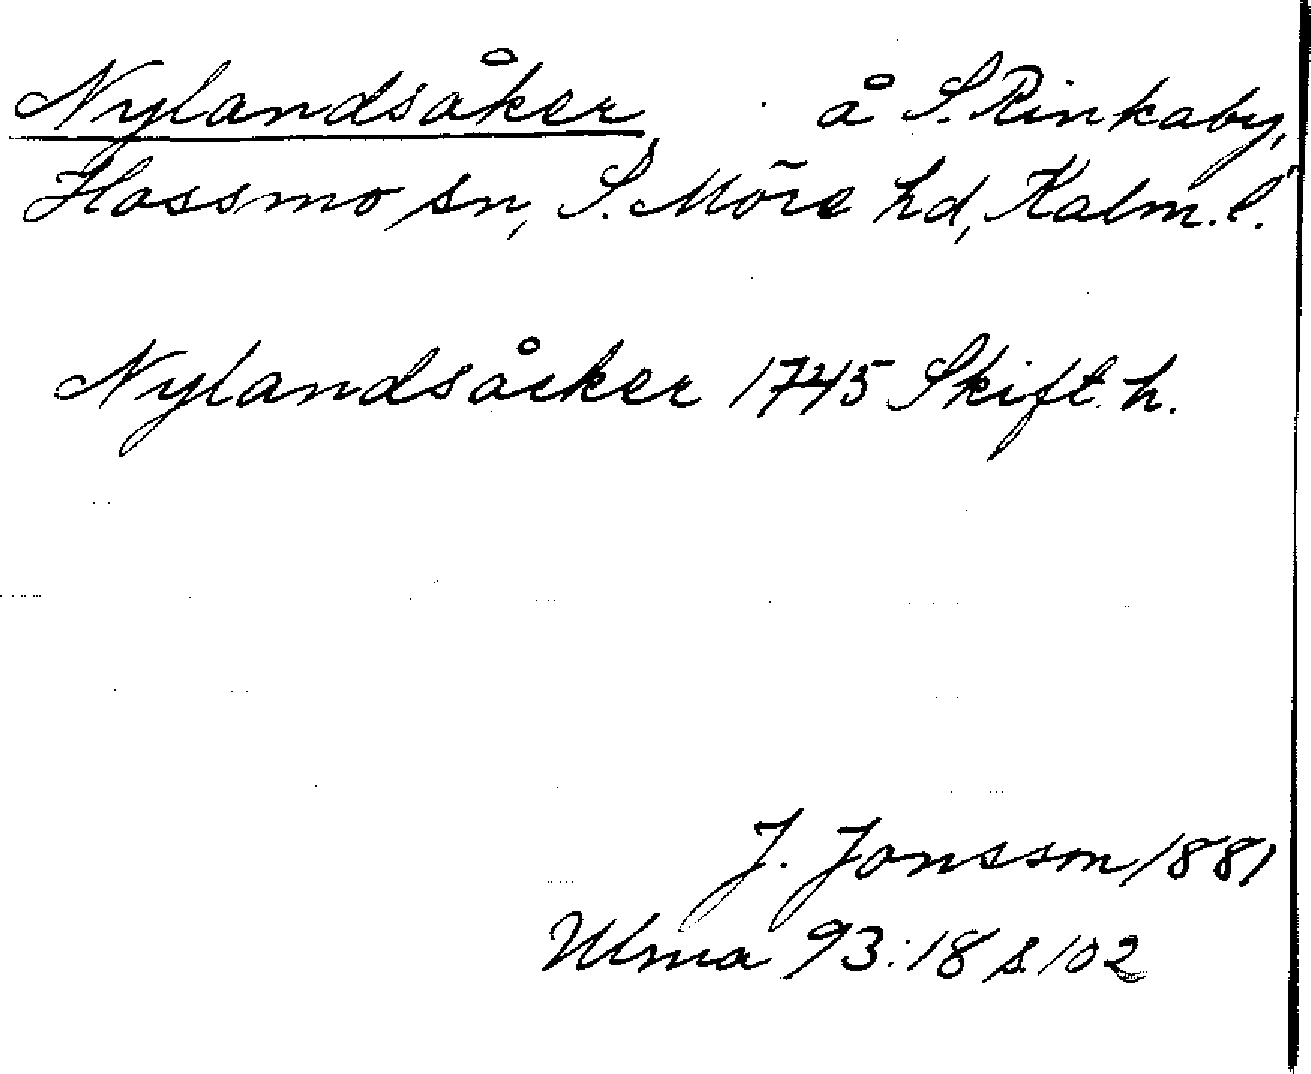 Nylandsåker, å S. Rinkaby,
Hossmo sn, S. Möre hd, Kalm. l.
Nylandsåcker 1745 Skift. h.
J. Jonsson 1881
Ulma 93:18 s. 102